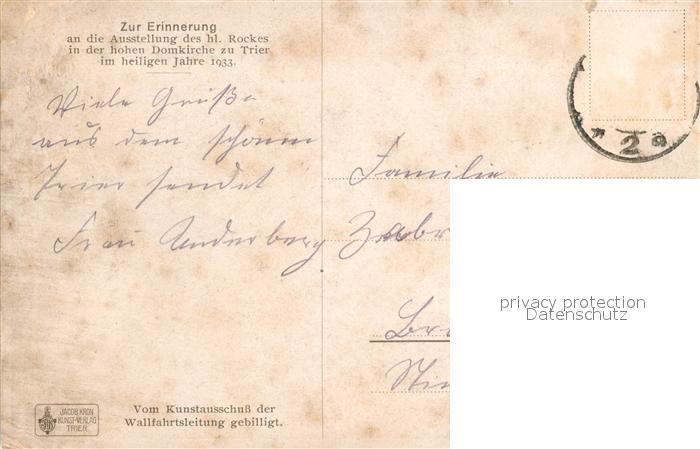 Zur Erinnerung
an die Ausstellung des hl. Rockes
in der hohen Domkirche zu Trier
im heiligen Jahre 1933.
Viele Grüße
aus dem schönen
Trier sendet
Frau Anderberg
Familie
2 a
privacy protection
Datenschutz
JACOB KRON
KUNST-VERLAG
TRIER
Vom Kunstausschuß der
Wallfahrtsleitung gebilligt.